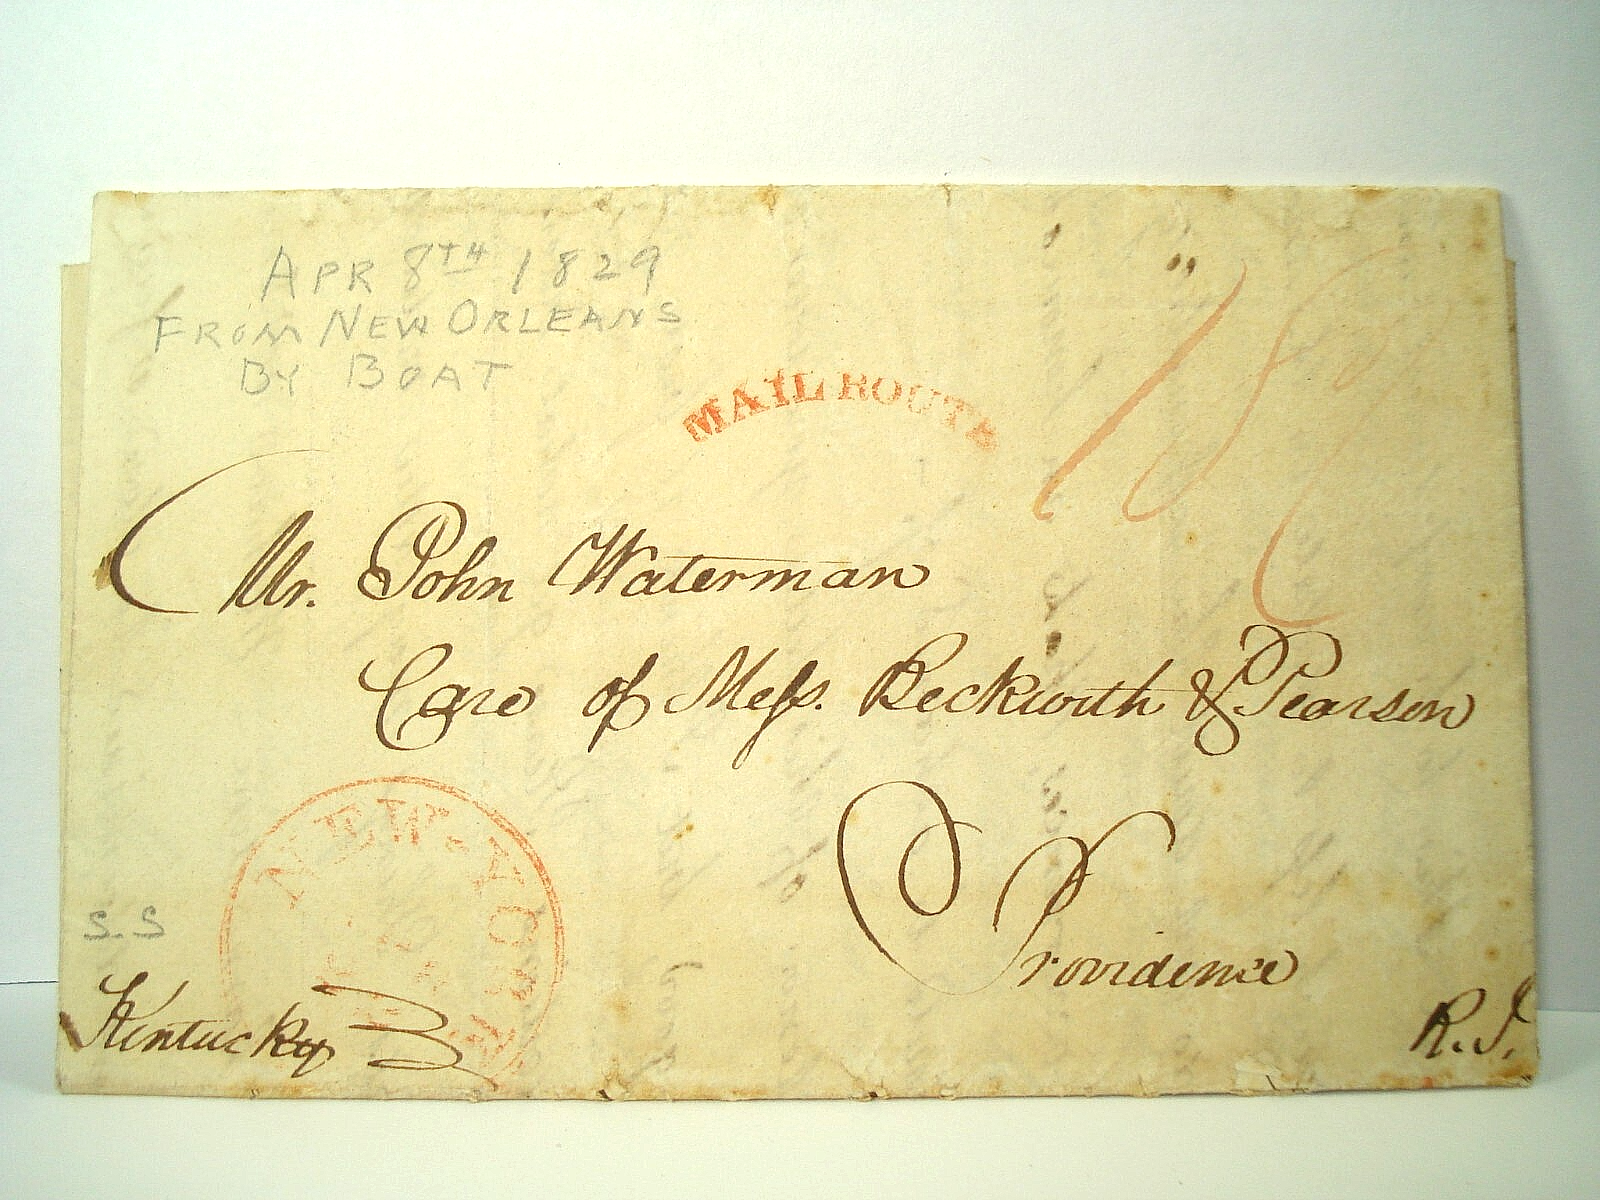 APR 8TH 1829
FROM NEW ORLEANS
BY BOAT
MAIL ROUTE
Mr. John Waterman
Care of Meſs. Beckwith & Pearson
Providence
R.I.
NEW-YORK
S.S
Kentucky